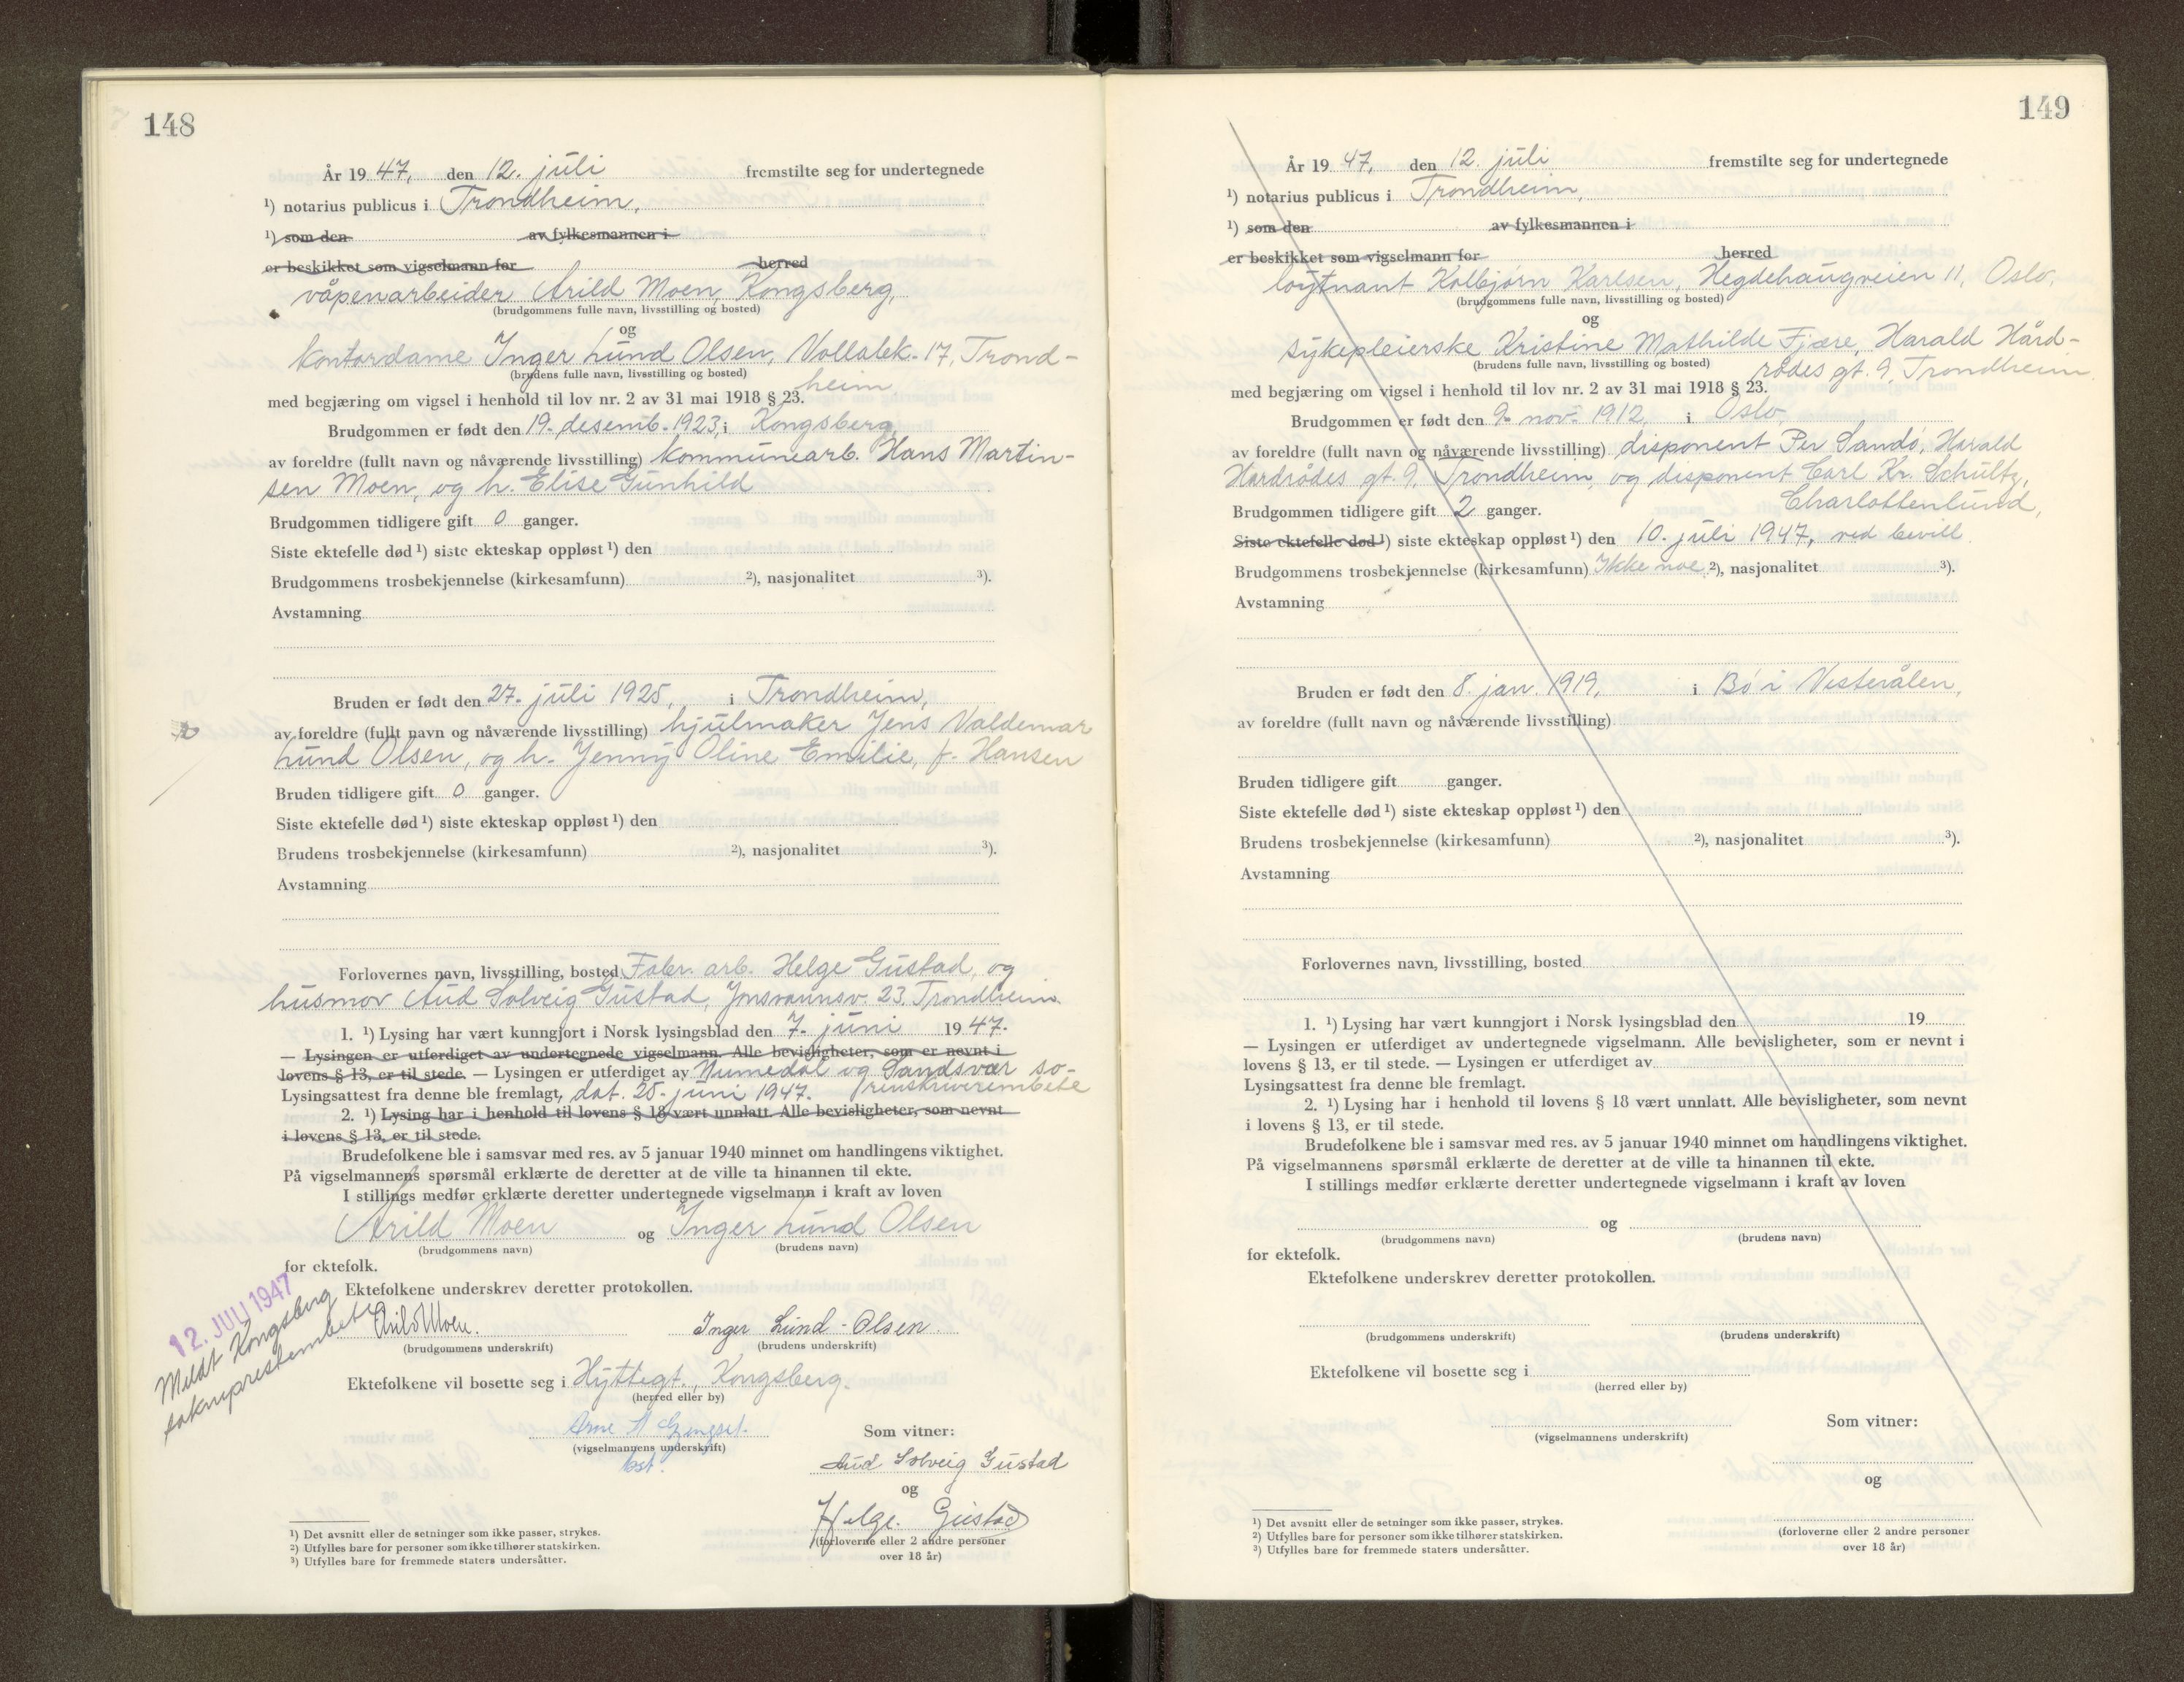 148
År 19 47, den 12. juli fremstilte seg for undertegnede
¹) notarius publicus i Trondheim,
¹) som den av fylkesmannen i
er beskikket som vigselmann for herred
våpenarbeider Arild Moen, Kongsberg,
(brudgommens fulle navn, livsstilling og bosted)
og
kontordame Inger Lund Olsen, Vollabk. 17, Trond-
(brudens fulle navn, livsstilling og bosted)
heim
med begjæring om vigsel i henhold til lov nr. 2 av 31 mai 1918 § 23.
Brudgommen er født den 19. desemb. 1923, i Kongsberg,
av foreldre (fullt navn og nåværende livsstilling) kommunearb. Hans Martin-
sen Moen, og h. Elise Gunhild
Brudgommen tidligere gift 0 ganger.
Siste ektefelle død ¹) siste ekteskap oppløst ¹) den
Brudgommens trosbekjennelse (kirkesamfunn) ²), nasjonalitet ³).
Avstamning
Bruden er født den 27. juli 1925, i Trondheim,
av foreldre (fullt navn og nåværende livsstilling) hjulmaker Jens Valdemar
Lund Olsen, og h. Jenny Oline Emilie, f. Hansen
Bruden tidligere gift 0 ganger.
Siste ektefelle død ¹) siste ekteskap oppløst ¹) den
Brudens trosbekjennelse (kirkesamfunn) ²), nasjonalitet ³).
Avstamning
Forlovernes navn, livsstilling, bosted Fabr. arb. Helge Gustad, og
husmor Aud Solveig Gustad, Jonsvannsv. 23. Trondheim
1. ¹) Lysing har vært kunngjort i Norsk lysingsblad den 7. juni 1947.
— Lysingen er utferdiget av undertegnede vigselmann. Alle bevisligheter, som er nevnt i
lovens § 13, er til stede. — Lysingen er utferdiget av Numedal og Sandsvær so-
Lysingsattest fra denne ble fremlagt, dat. 25. juni 1947. renskriverembete
2. ¹) Lysing har i henhold til lovens § 18 vært unnlatt. Alle bevisligheter, som nevnt
i lovens § 13, er til stede.
Brudefolkene ble i samsvar med res. av 5 januar 1940 minnet om handlingens viktighet.
På vigselmannens spørsmål erklærte de deretter at de ville ta hinannen til ekte.
I stillings medfør erklærte deretter undertegnede vigselmann i kraft av loven
Arild Moen og Inger Lund Olsen
(brudgommens navn) (brudens navn)
for ektefolk.
Ektefolkene underskrev deretter protokollen.
12. JULI 1947
Meldt Kongsberg
sokneprestembete
Arild Moen. Inger Lund-Olsen.
(brudgommens underskrift) (brudens underskrift)
Ektefolkene vil bosette seg i Hyttegt., Kongsberg.
(herred eller by)
Arne
(vigselmannens underskrift)
bst.
Som vitner:
Aud Solveig Gustad
og
Helge Gustad
(forloverne eller 2 andre personer
over 18 år)
¹) Det avsnitt eller de setninger som ikke passer, strykes.
²) Utfylles bare for personer som ikke tilhører statskirken.
³) Utfylles bare for fremmede staters undersåtter.
149
År 19 47, den 12. juli fremstilte seg for undertegnede
¹) notarius publicus i Trondheim,
¹) som den av fylkesmannen i
er beskikket som vigselmann for herred
løytnant Kolbjørn Karlsen, Hegdehaugveien 11, Oslo,
(brudgommens fulle navn, livsstilling og bosted)
og
sykepleierske Kristine Mathilde Fjære, Harald Hård-
(brudens fulle navn, livsstilling og bosted)
rådes gt. 9, Trondheim
med begjæring om vigsel i henhold til lov nr. 2 av 31 mai 1918 § 23.
Brudgommen er født den 9. nov. 1912, i Oslo,
av foreldre (fullt navn og nåværende livsstilling) disponent Per Sandø, Harald
Hardrådes gt. 9, Trondheim, og disponent Carl Kr. Schultz,
Charlottenlund,
Brudgommen tidligere gift 2 ganger.
Siste ektefelle død ¹) siste ekteskap oppløst ¹) den 10. juli 1947, ved bevill
Brudgommens trosbekjennelse (kirkesamfunn) Ikke noe ²), nasjonalitet ³).
Avstamning
Bruden er født den 8. jan. 1919, i Bø i Vesterålen,
av foreldre (fullt navn og nåværende livsstilling)
Bruden tidligere gift ganger.
Siste ektefelle død ¹) siste ekteskap oppløst ¹) den
Brudens trosbekjennelse (kirkesamfunn) ²), nasjonalitet ³).
Avstamning
Forlovernes navn, livsstilling, bosted
1. ¹) Lysing har vært kunngjort i Norsk lysingsblad den 19
— Lysingen er utferdiget av undertegnede vigselmann. Alle bevisligheter, som er nevnt i
lovens § 13, er til stede. — Lysingen er utferdiget av
Lysingsattest fra denne ble fremlagt.
2. ¹) Lysing har i henhold til lovens § 18 vært unnlatt. Alle bevisligheter, som nevnt
i lovens § 13, er til stede.
Brudefolkene ble i samsvar med res. av 5 januar 1940 minnet om handlingens viktighet.
På vigselmannens spørsmål erklærte de deretter at de ville ta hinannen til ekte.
I stillings medfør erklærte deretter undertegnede vigselmann i kraft av loven
og
(brudgommens navn) (brudens navn)
for ektefolk.
Ektefolkene underskrev deretter protokollen.
(brudgommens underskrift) (brudens underskrift)
Ektefolkene vil bosette seg i
(herred eller by)
Som vitner:
(vigselmannens underskrift)
og
(forloverne eller 2 andre personer
over 18 år)
¹) Det avsnitt eller de setninger som ikke passer, strykes.
²) Utfylles bare for personer som ikke tilhører statskirken.
³) Utfylles bare for fremmede staters undersåtter.